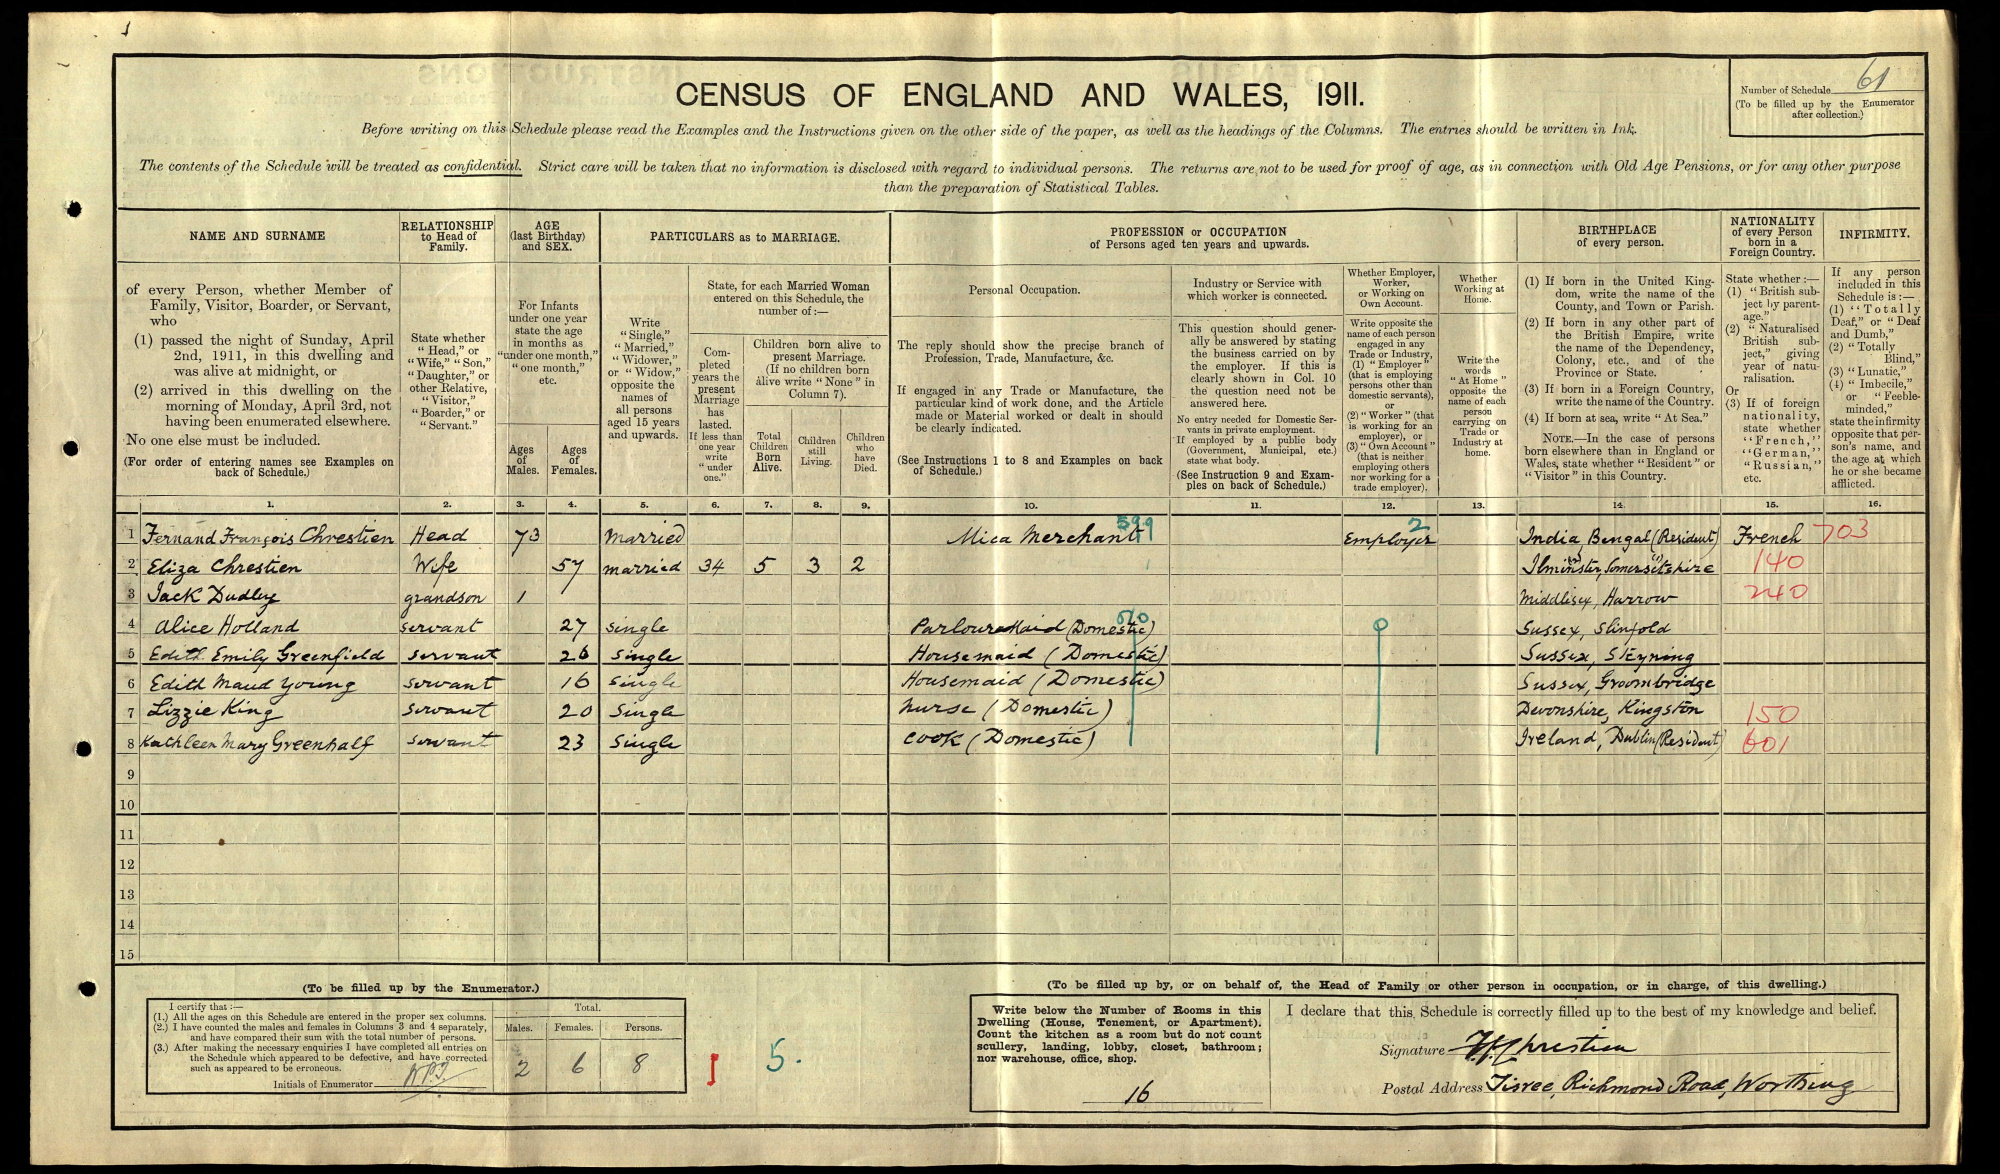 Number of Schedule 61
(To be filled up by the Enumerator
after collection.)
CENSUS OF ENGLAND AND WALES, 1911.
Before writing on this Schedule please read the Examples and the Instructions given on the other side of the paper, as well as the headings of the Columns. The entries should be written in Ink.
The contents of the Schedule will be treated as confidential. Strict care will be taken that no information is disclosed with regard to individual persons. The returns are not to be used for proof of age, as in connection with Old Age Pensions, or for any other purpose
than the preparation of Statistical Tables.
NAME AND SURNAME
of every Person, whether Member of
Family, Visitor, Boarder, or Servant,
who
(1) passed the night of Sunday, April
2nd, 1911, in this dwelling and
was alive at midnight, or
(2) arrived in this dwelling on the
morning of Monday, April 3rd, not
having been enumerated elsewhere.
No one else must be included.
(For order of entering names see Examples on
back of Schedule.)
RELATIONSHIP
to Head of
Family.
State whether
"Head," or
"Wife," "Son,"
"Daughter," or
other Relative,
"Visitor,"
"Boarder," or
"Servant."
AGE
(last Birthday)
and SEX.
For Infants
under one year
state the age
in months as
"under one month,"
"one month,"
etc.
Ages
of
Males.
Ages
of
Females.
PARTICULARS as to MARRIAGE.
Write
"Single,"
"Married,"
"Widower,"
or "Widow,"
opposite the
names of
all persons
aged 15 years
and upwards.
State, for each Married Woman
entered on this Schedule, the
number of:—
Com-
pleted
years the
present
Marriage
has
lasted.
If less than
one year
write
"under
one."
Children born alive to
present Marriage.
(If no children born
alive write "None" in
Column 7).
Total
Children
Born
Alive.
Children
still
Living.
Children
who
have
Died.
PROFESSION or OCCUPATION
of Persons aged ten years and upwards.
Personal Occupation.
The reply should show the precise branch of
Profession, Trade, Manufacture, &c.
If engaged in any Trade or Manufacture, the
particular kind of work done, and the Article
made or Material worked or dealt in should
be clearly indicated.
(See Instructions 1 to 8 and Examples on back
of Schedule.)
Industry or Service with
which worker is connected.
This question should gener-
ally be answered by stating
the business carried on by
the employer. If this is
clearly shown in Col. 10
the question need not be
answered here.
No entry needed for Domestic Ser-
vants in private employment.
If employed by a public body
(Government, Municipal, etc.)
state what body.
(See Instruction 9 and Exam-
ples on back of Schedule.)
Whether Employer,
Worker,
or Working on
Own Account.
Write opposite the
name of each person
engaged in any
Trade or Industry,
(1) "Employer"
(that is employing
persons other than
domestic servants),
or
(2) "Worker" (that
is working for an
employer), or
(3) "Own Account"
(that is neither
employing others
nor working for a
trade employer).
Whether
Working at
Home.
Write the
words
"At Home"
opposite the
name of each
person
carrying on
Trade or
Industry at
home.
BIRTHPLACE
of every person.
(1) If born in the United King-
dom, write the name of the
County, and Town or Parish.
(2) If born in any other part of
the British Empire, write
the name of the Dependency,
Colony, etc., and of the
Province or State.
(3) If born in a Foreign Country,
write the name of the Country.
(4) If born at sea, write "At Sea."
NOTE.—In the case of persons
born elsewhere than in England or
Wales, state whether "Resident" or
"Visitor" in this Country.
NATIONALITY
of every Person
born in a
Foreign Country.
State whether:—
(1) "British sub-
ject by parent-
age."
(2) "Naturalised
British sub-
ject," giving
year of natu-
ralisation.
Or
(3) If of foreign
nationality,
state whether
"French,"
"German,"
"Russian,"
etc.
INFIRMITY.
If any person
included in this
Schedule is:—
(1) "Totally
Deaf," or "Deaf
and Dumb,"
(2) "Totally
Blind,"
(3) "Lunatic,"
(4) "Imbecile,"
or "Feeble-
minded,"
state the infirmity
opposite that per-
son's name, and
the age at which
he or she became
afflicted.
1. 2. 3. 4. 5. 6. 7. 8. 9. 10. 11. 12. 13. 14. 15. 16.
1 Fernand François Chrestien Head 73 Married Mica Merchant 599 Employer 2 India Bengal (Resident) French 703
2 Eliza Chrestien Wife 57 married 34 5 3 2 Ilminster, Somersetshire 140
3 Jack Dudley grandson 1 Middlisex, Harrow 240
4 Alice Holland servant 27 single Parlourmaid (Domestic) 0 Sussex, Slinfold
5 Edith Emily Greenfield servant 26 single Housemaid (Domestic) Sussex, Steyning
6 Edith Maud Young servant 16 single Housemaid (Domestic) Sussex, Groombridge
7 Lizzie King servant 20 Single nurse (Domestic) Devonshire, Kingston 150
8 Kathleen Mary Greenhalf servant 23 Single cook (Domestic) Ireland, Dublin (Resident) 601
9
10
11
12
13
14
15
(To be filled up by the Enumerator.)
I certify that:—
(1.) All the ages on this Schedule are entered in the proper sex columns.
(2.) I have counted the males and females in Columns 3 and 4 separately,
and have compared their sum with the total number of persons.
(3.) After making the necessary enquiries I have completed all entries on
the Schedule which appeared to be defective, and have corrected
such as appeared to be erroneous.
Initials of Enumerator
Total.
Males. Females. Persons.
2 6 8
1 5.
(To be filled up by, or on behalf of, the Head of Family or other person in occupation, or in charge, of this dwelling.)
Write below the Number of Rooms in this
Dwelling (House, Tenement, or Apartment).
Count the kitchen as a room but do not count
scullery, landing, lobby, closet, bathroom;
nor warehouse, office, shop.
16
I declare that this Schedule is correctly filled up to the best of my knowledge and belief.
Signature F.F. Chrestien
Postal Address Tisree, Richmond Road, Worthing